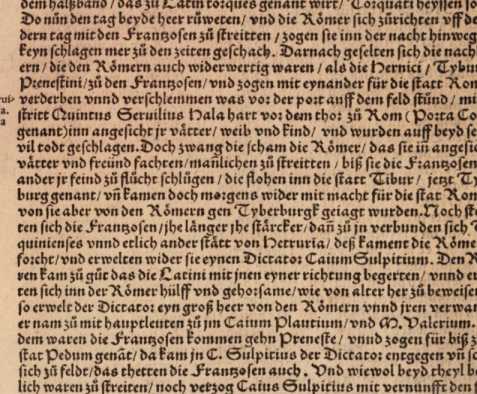 dem halßband/das zů Latin torques genant wirt/ Torquati heyssen so
Do nůn den tag beyde heer růweten/ vnd die Römer sich zůrichten vff de
dern tag mit den Frantzosen zů streitten/zogen sie inn der nacht hinweg
keyn schlagen mer zů den zeiten geschach. Darnach geselten sich die nach
ern/die den Römern auch widerwertig waren/als die Hernici/ Tybur
Prenestini/zů den Frantzosen/vnd zogen mit eynander für die statt Rom
verderben vnnd verschlemmen was vor der port auff dem feld stůnd/ mi
strit Quintus Seruilius Hala hart vor dem thor zů Rom ( Porta Co
genant)inn angesicht jr vätter/weib vnd kind/ vnd wurden auff beyd se
vil todt geschlagen. Doch zwang die scham die Römer/ das sie in angesic
vätter vnd freünd fachten/manlichen zů streitten/ biß sie die Frantzosen
ander jr feind zů flücht schlůgen/die flohen inn die statt Tibur/ jetzt Ty
burg genant/vñ kamen doch morgens wider mit macht für die stat Rom
von sie aber von den Römern gen Tyberburgk geiagt wurden. Noch ste
ten sich die Frantzosen/jhe länger jhe stärcker/dañ zů jn verbunden sich T
quinienses vnnd etlich ander stätt von Hetruria/ deß kament die Röme
forcht/vnd erwelten wider sie eynen Dictator Caium Sulpitium. Den R
ren kam zů gůt das die Latini mit jnen eyner richtung begerten/ vnnd er
ten sich inn der Römer hülff vnd gehorsame/wie von alter her zů beweisen
so erwelt der Dictator eyn groß heer von den Römern vnnd jren verwan
er nam zů mit hauptleuten zů jm Caium Plautium/vnd M. Valerium.
dem waren die Frantzosen kommen gehn Preneste/ vnnd zogen für biß z
stat Pedum genāt/da kam jn C. Sulpitius der Dictator entgegen vñ sc
sich zů feldt/das thetten die Frantzosen auch. Vnd wiewol beyd theyl be
lich waren zů streiten/ noch verzog Caius Sulpitius mit vernunfft den s